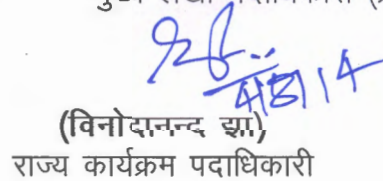 4/8/14
(विनोदानन्द झा)
राज्य कार्यक्रम पदाधिकारी